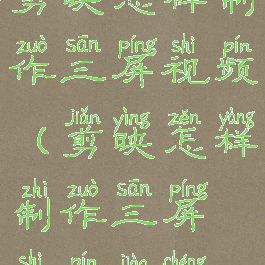 剪映怎样制
zuò sān píng shì pín
作三屏视频
jiǎn yìng zěn yàng
（剪映怎样
zhì zuò sān píng
制作三屏
shì pín jiào chéng